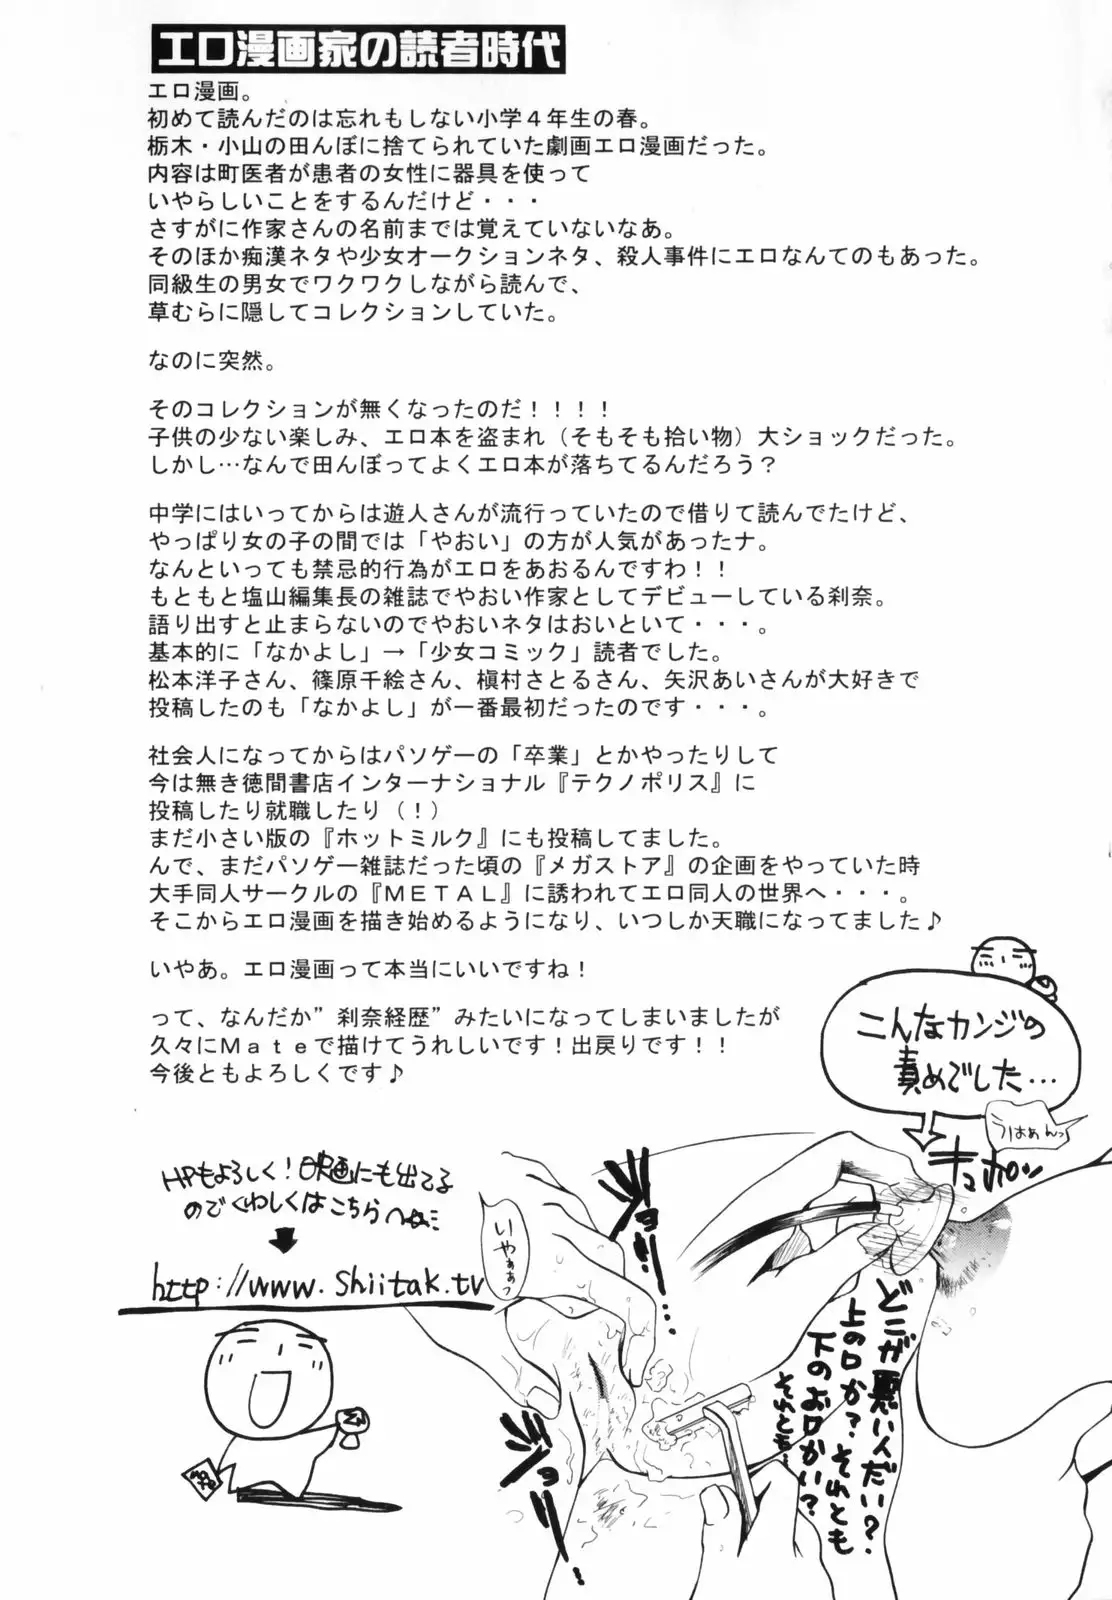 エロ漫画家の読者時代
エロ漫画。
初めて読んだのは忘れもしない小学４年生の春。
栃木・小山の田んぼに捨てられていた劇画エロ漫画だった。
内容は町医者が患者の女性に器具を使って
いやらしいことをするんだけど・・・
さすがに作家さんの名前までは覚えていないなあ。
そのほか痴漢ネタや少女オークションネタ、殺人事件にエロなんてのもあった。
同級生の男女でワクワクしながら読んで、
草むらに隠してコレクションしていた。
なのに突然。
そのコレクションが無くなったのだ！！！！
子供の少ない楽しみ、エロ本を盗まれ（そもそも拾い物）大ショックだった。
しかし…なんで田んぼってよくエロ本が落ちてるんだろう？
中学にはいってからは遊人さんが流行っていたので借りて読んでたけど、
やっぱり女の子の間では「やおい」の方が人気があったナ。
なんといっても禁忌的行為がエロをあおるんですわ！！
もともと塩山編集長の雑誌でやおい作家としてデビューしている刹奈。
語り出すと止まらないのでやおいネタはおいといて・・・。
基本的に「なかよし」→「少女コミック」読者でした。
松本洋子さん、篠原千絵さん、槇村さとるさん、矢沢あいさんが大好きで
投稿したのも「なかよし」が一番最初だったのです・・・。
社会人になってからはパソゲーの「卒業」とかやったりして
今は無き徳間書店インターナショナル『テクノポリス』に
投稿したり就職したり（！）
まだ小さい版の『ホットミルク』にも投稿してました。
んで、まだパソゲー雑誌だった頃の『メガストア』の企画をやっていた時
大手同人サークルの『ＭＥＴＡＬ』に誘われてエロ同人の世界へ・・・。
そこからエロ漫画を描き始めるようになり、いつしか天職になってました♪
いやあ。エロ漫画って本当にいいですね！
って、なんだか”刹奈経歴”みたいになってしまいましたが
久々にＭａｔｅで描けてうれしいです！出戻りです！！
今後ともよろしくです♪
こんなカンジの
責めでした…
うはぁんっ
HPもよろしく！映画にも出てる
のでくわしくはこちらへ
http://www.shiitak.tv
いやぁぁっ
どこが悪いんだい？
上の口か？それとも
下のお口かい？
それとも…